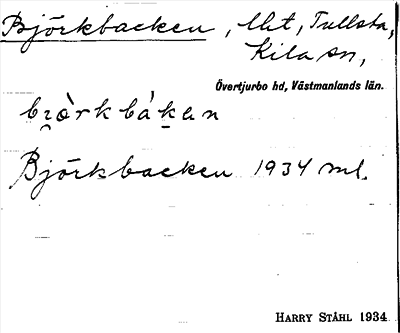 Björkbacken, lht, Tullsta,
Kila sn,
Övertjurbo hd, Västmanlands län.
Björkbacken 1934 ml.
HARRY STÅHL 1934